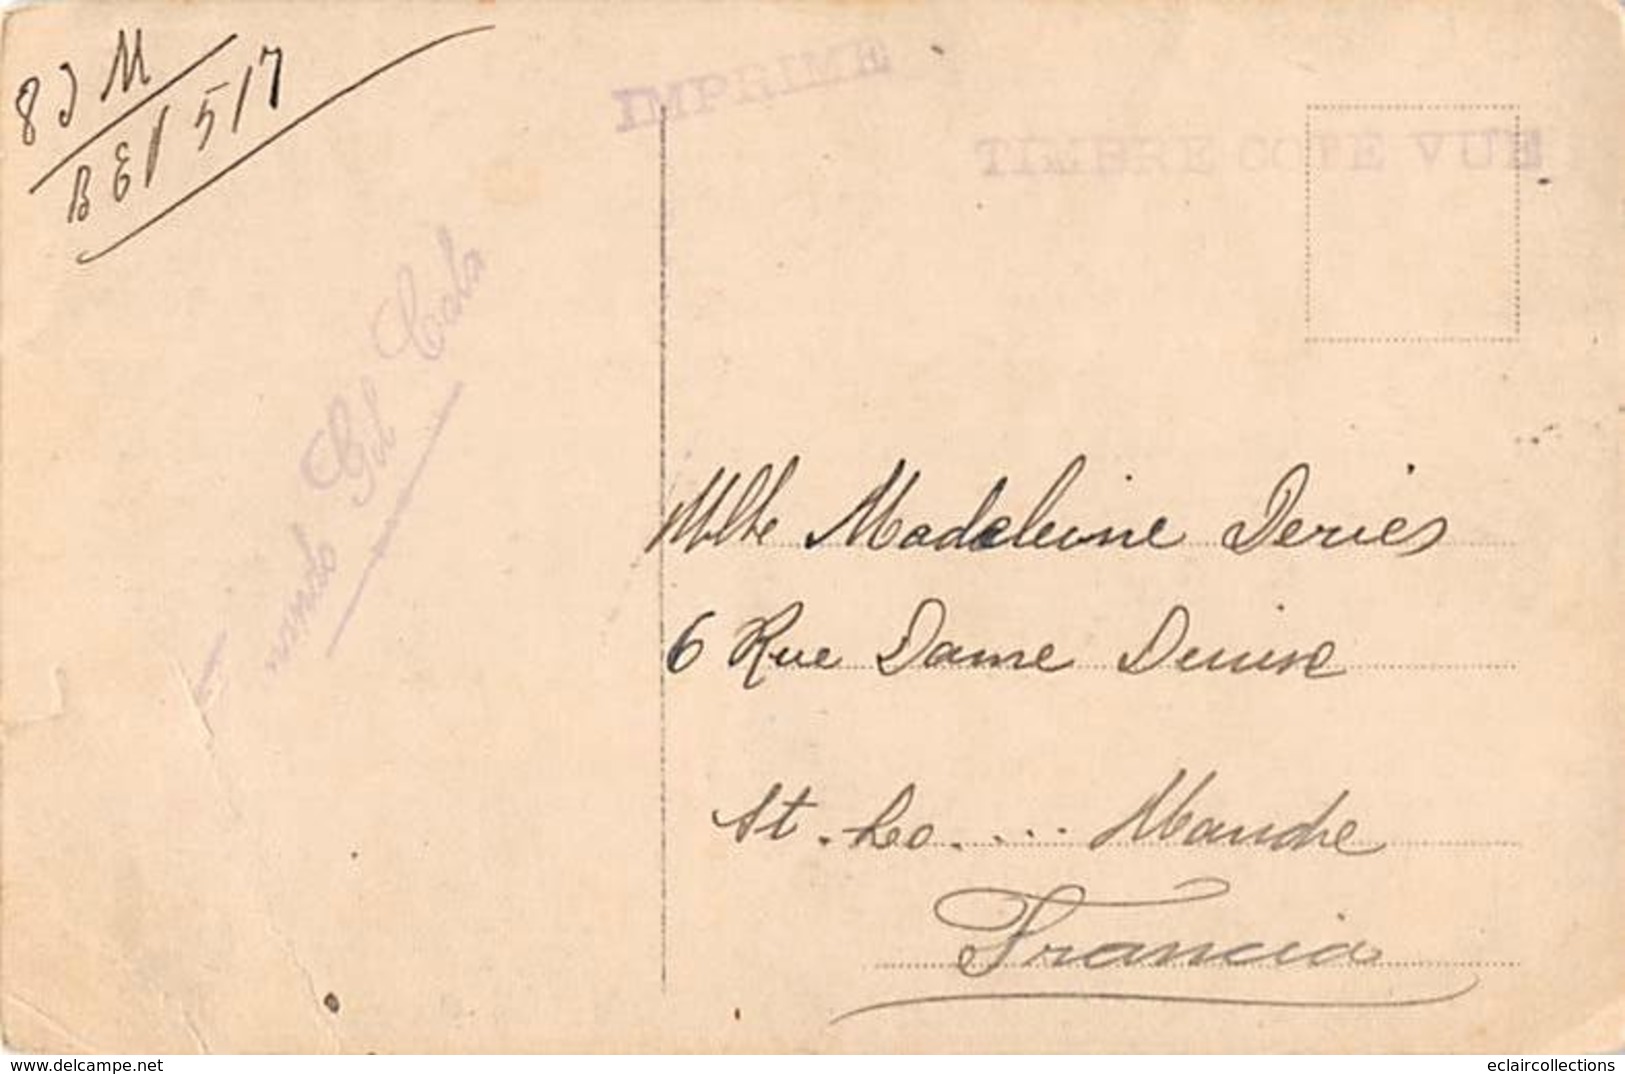 8 J M
B E / 5 / 7
IMPRIME
TIMBRE COTE VUE
Gil Cola
Mlle Madeleine Deries
6 Rue Dame Denise
St. Lo.... Manche
Francia
www.delcampe.net
eclaircollections